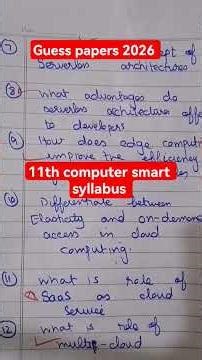 Guess papers 2026
(7)
ept of
Serverless architectures
(8) what advantages do
serverless architecture offer
to developers
(9) How does edge comput
improve the efficiency
11th computer smart
syllabus
Differentiate between
Elasticity and on-demand
access in cloud
computing.
(11) what is role of
SaaS as cloud
Service
(12) what is role of
multi-cloud